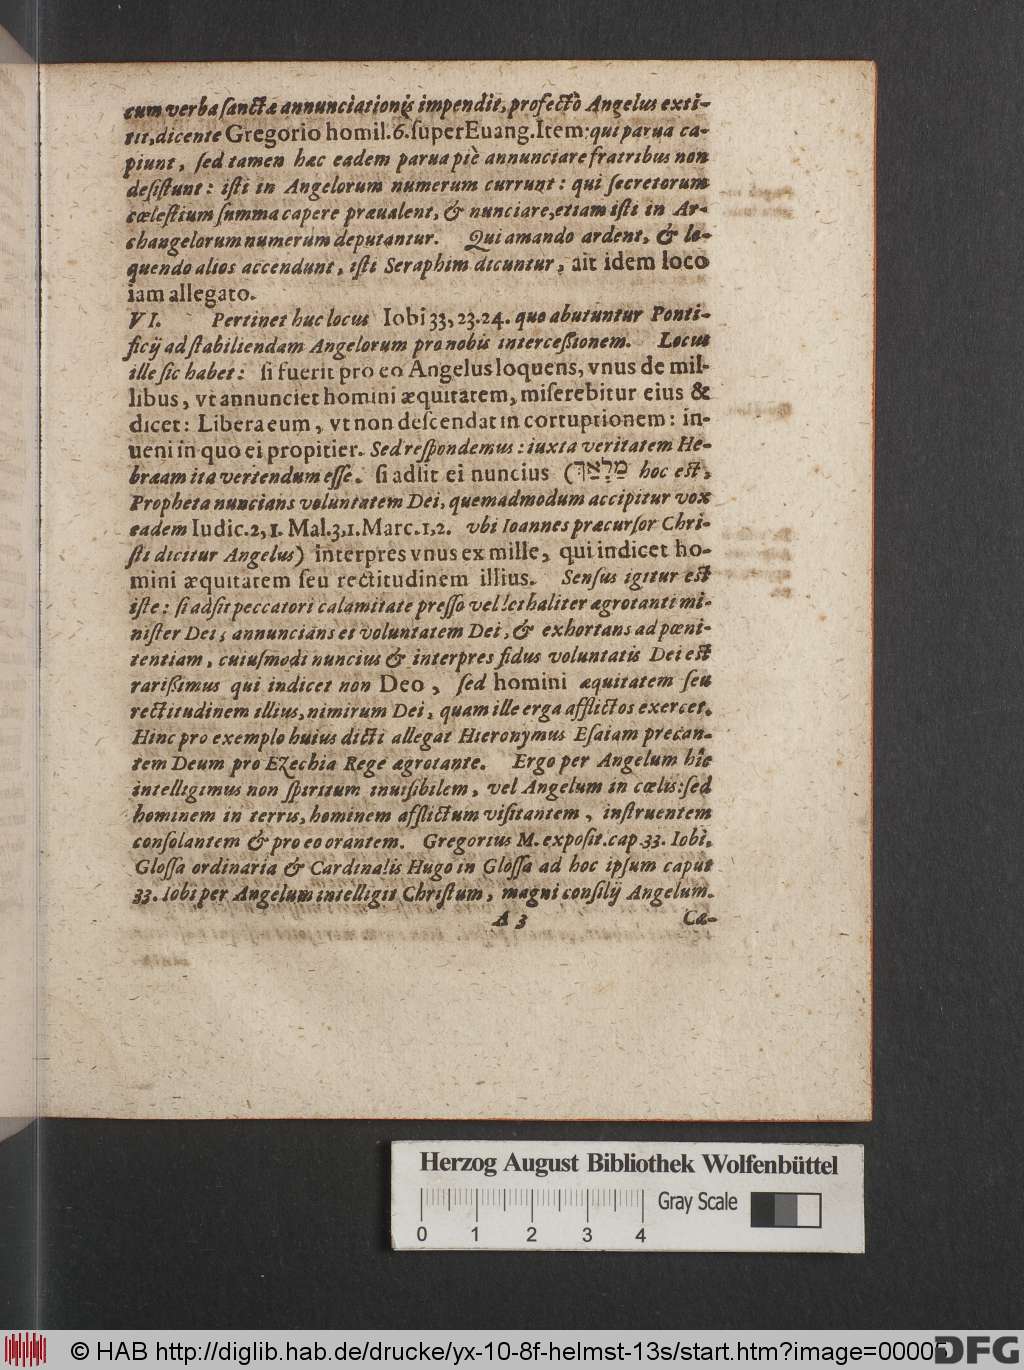 cum verba sanctæ annunciationis impendit, profectò Angelus exti-
tit, dicente Gregorio homil. 6. super Euang. Item: qui parua ca-
piunt, sed tamen hæc eadem parua piè annunciare fratribus non
desistunt: isti in Angelorum numerum currunt: qui secretorum
cœlestium summa capere præualent, & nunciare, etiam isti in Ar-
changelorum numerum deputantur. Qui amando ardent, & lo-
quendo alios accendunt, isti Seraphim dicuntur, ait idem loco
iam allegato.
VI. Pertinet huc locus Iobi 33, 23. 24. quo abutuntur Ponti-
ficij ad stabiliendam Angelorum pro nobis intercessionem. Locus
ille sic habet: si fuerit pro eo Angelus loquens, vnus de mil-
libus, vt annunciet homini æquitatem, miserebitur eius &
dicet: Libera eum, vt non descendat in corruptionem: in-
ueni in quo ei propitier. Sed respondemus: iuxta veritatem He-
bræam ita vertendum esse. si adsit ei nuncius (מַלְאָךְ hoc est,
Propheta nuncians voluntatem Dei, quemadmodum accipitur vox
eadem Iudic. 2, 1. Mal. 3, 1. Marc. 1, 2. vbi Ioannes præcursor Chri-
sti dicitur Angelus) interpres vnus ex mille, qui indicet ho-
mini æquitatem seu rectitudinem illius. Sensus igitur est
iste: si adsit peccatori calamitate presso vel lethaliter ægrotanti mi-
nister Dei, annuncians et voluntatem Dei, & exhortans ad pœni-
tentiam, cuiusmodi nuncius & interpres fidus voluntatis Dei est
rarissimus qui indicet non Deo, sed homini æquitatem seu
rectitudinem illius, nimirum Dei, quam ille erga afflictos exercet.
Hinc pro exemplo huius dicti allegat Hieronymus Esaiam precan-
tem Deum pro Ezechia Rege ægrotante. Ergo per Angelum hîc
intelligimus non spiritum inuisibilem, vel Angelum in cœlis: sed
hominem in terris, hominem afflictum visitantem, instruentem
consolantem & pro eo orantem. Gregorius M. exposit. cap. 33. Iobi,
Glossa ordinaria & Cardinalis Hugo in Glossa ad hoc ipsum caput
33. Iobi per Angelum intelligit Christum, magni consilij Angelum.
A 3 Ca-
Herzog August Bibliothek Wolfenbüttel
Gray Scale
0 1 2 3 4
© HAB http://diglib.hab.de/drucke/yx-10-8f-helmst-13s/start.htm?image=00005
DFG